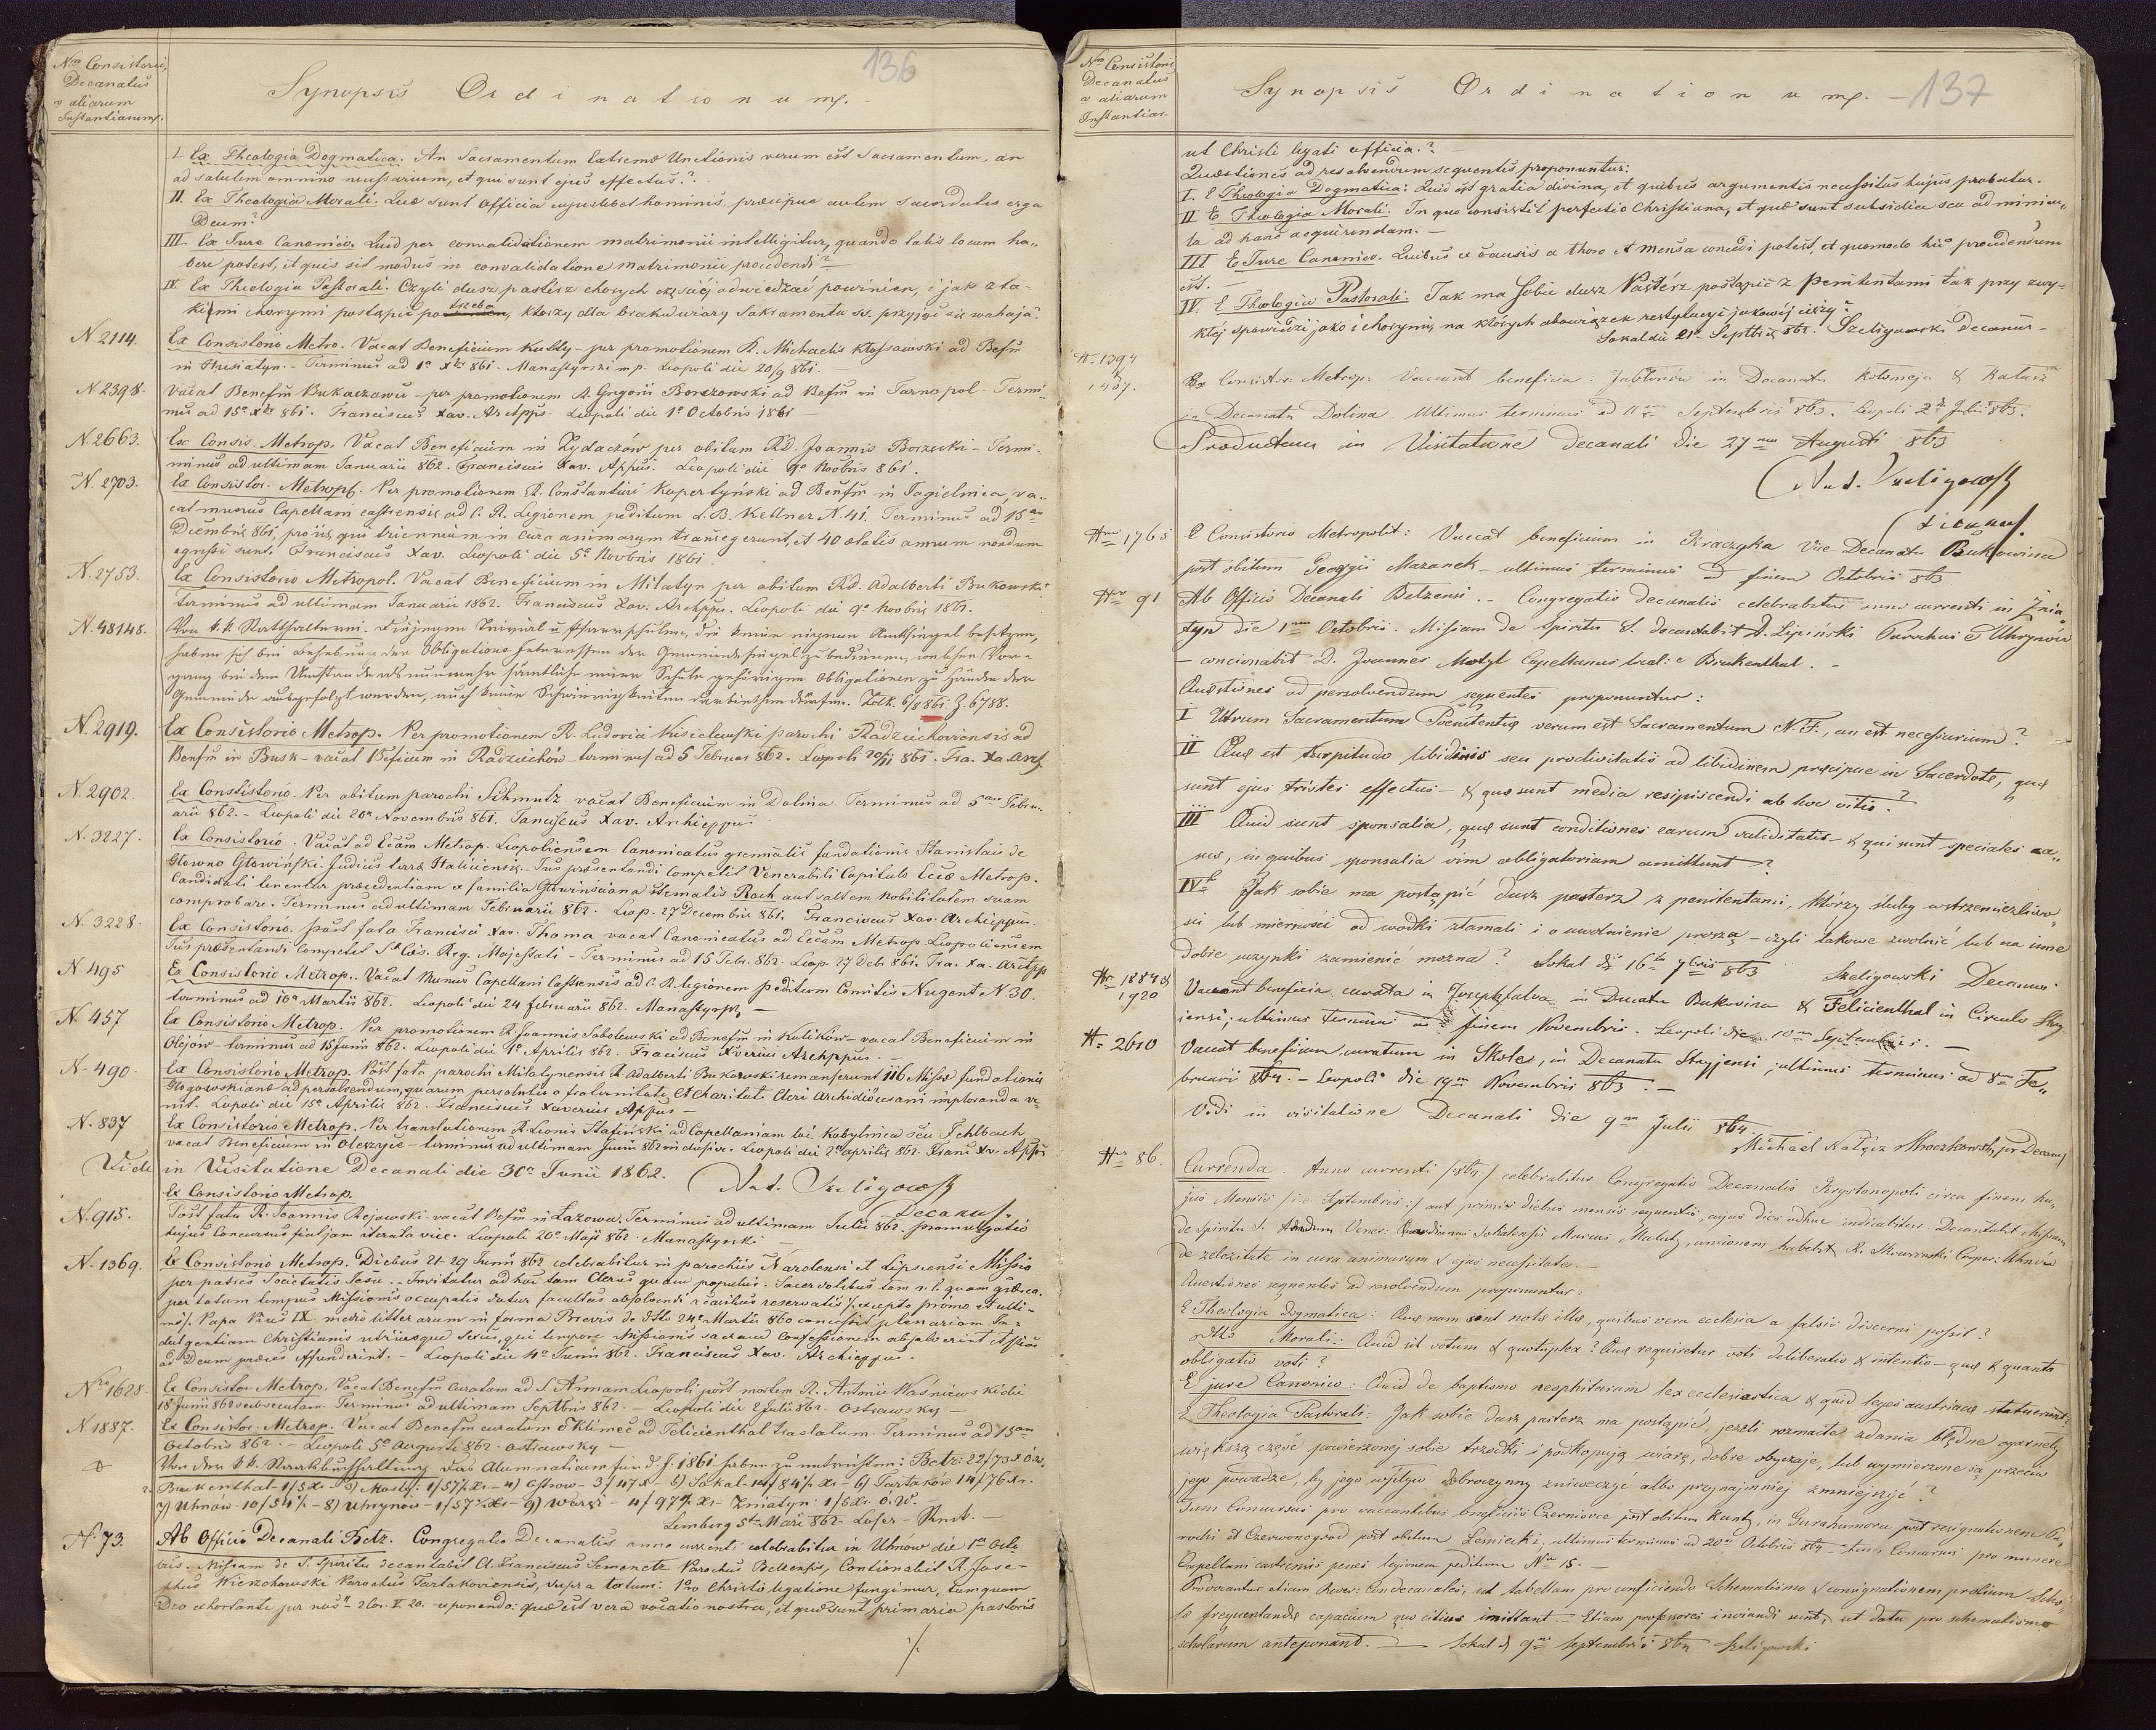 136
Nrus Consistorii,
Decanatus
v aliarum
Instantiarum.
Synopsis Ordinationum.
I. Ex Theologia Dogmatica. An Sacramentum Extremæ Unctionis verum est Sacramentum, an
ad salutem omnino necessarium, et qui sunt ejus effectus?
II. Ex Theologia Morali. Quæ sunt officia cujuslibet hominis, præcipue autem sacerdotis erga
Deum?
III. Ex Jure Canonico. Quid per convalidationem matrimonii intelligitur, quando talis locum ha-
bere potest, et quis sit modus in convalidatione matrimonii procedendi?
IV. Ex Theologia Pastorali. Czyli dusz pasterz chorych częściej odwiedzać powinien, i jak z ta-
kimi chorymi postąpić trzeba, którzy dla braku wiary Sakramenta ss. przyjąć się wahają?
N 2114. Ex Consistorio Metro. Vacat Beneficium Kutty - per promotionem R. Michaelis Kłossowski ad Befm
in Husiatyn. - Terminus ad 1a Xbr 861. Manastyrski mp. Leopoli die 20/9 861.
N. 2398. Vacat Benefm Bukaczowce - per promotionem R. Gregorii Boroszowski ad Befm in Tarnopol - Termi-
nus ad 15a Xbr 861. Franciscus Xav. Arctpps. Leopoli die 1a Octobris 1861 -
N. 2663. Ex Consis. Metrop. Vacat Beneficium in Żydaczów per obitum Rd. Joannis Borzęcki - Termi-
minus ad ultimam Januarii 862. Franciscus Xav. Appus. Leopoli die 9a Novbris 861.
N. 2703. Ex Consistor. Metropl. Per promotionem R. Constantini Kopertyński ad Benefm in Jagielnica, va-
cat munus Capellani castrensis ad C. R. Legionem peditum L. B. Kellner N. 41. Terminus ad 15am
Decembris 861, pro iis, qui triennium in cura animarum transegerunt, et 40 ætatis annum nondum
egressi sunt. Franciscus Xav. Leopoli die 5a Novbris 1861.
N. 2753. Ex Consistorio Metropol. Vacat Beneficium in Milatyn per obitum Rd. Adalberti Bukowski
terminus ad ultimam Januarii 1862. Franciscus Xav. Arctppu. Leopoli die 9a Novbris 1861.
N. 48148. Von k.k. Statthalterei. Diejenigen Trivial u Pfarrschulen, die keine eigenen Amtssiegel besitzen,
haben sich bei Behebung der Obligations Interessen der Gemeindesiegel zu bedienen, welcher Vor-
gang bei dem Umstande als nunmehr sämtliche einer Schule gehörigen Obligationen zu Händen der
Gemeinde ausgefolgt werden, auch keine Schwierigkeiten darbiethen dürfte. Zołk. 6/8 861. Z. 6788.
N. 2919. Ex Consistorio Metrop. Per promotionem R. Ludovici Kisielewski parochi Radziechoviensis ad
Benfm in Busk - vacat Beficium in Radziechów - terminus ad 5 Februar 862. Leopoli 20/11 861. Fra. Xa Arch.
N. 2902. Ex Consistorio. Per obitum parochi Schmutz vacat Beneficium in Dolina. Terminus ad 5am Febru-
arii 862. - Leopoli die 20a Novembris 861. Franciscus Xav. Archieppus.
N. 3227. Ex Consistorio. Vacat ad Ecclam Metrop. Leopoliensem Canonicatus gremialis fundationis Stanislai de
Głowno Głowiński Judicis terræ Haliciensis. Jus præsentandi competit Venerabili Capitulo Eccæ Metrop.
Candidati tenentur præcedentiam ex familia Głowinsciana stematis Roch aut saltem Nobilitatem suam
comprobare. Terminus ad ultimam Februarii 862. Leop. 27 Decembris 861. Franciscus Xav. Archieppus.
N. 3228. Ex Consistorio. Post fata Francisci Xav. Thoma vacat Canonicatus ad Eccam Metrop. Leopoliensem
Jus præsentandi Competit S. Cæs. Reg. Majestati - Terminus ad 15 Febr. 862. Leop. 27 Debr. 861. Fra. Xa. Arctpp
N 495 Ex Consistorio Metrop. Vacat Munus Capellani Castrensis ad C. R. legionem peditum Comitis Nugent N. 30.
terminus ad 10a Martii 862. Leopoli die 24 februarii 862. Manastyrski -
N. 457 Ex Consistorio Metrop. Per promotionem R. Joannis Sobolewski ad Benefm in Kulików - vacat Beneficium in
Olejów - terminus ad 15 Junii 862. Leopoli die 1a Aprilis 862. Franciscus Xverius Archppus. -
N. 490. Ex Consistorio Metrop. Post fata parochi Milatynensis R. Adalberti Bukowski remanserunt 116 Missæ fundationis
Głogowskianæ ad persolvendum, quarum persolutio a fraternitate et Charitate Cleri Archidioecesani imploranda ve-
nit. Leopoli die 15a Aprilis 862. Franciscus Xaverius Appus -
N. 837 Ex Consistorio Metrop. Per translationem R. Leonis Statiński ad Capellaniam loi. Kobylnica seu Fehlbach
vacat Beneficium in Oleszyce - terminus ad ultimam Junii 862 inclusive. Leopoli die 2a aprilis 862. Franc Xv. Appus
Vide in Visitatione Decanali die 30a Junii 1862. Ant. Szeligowski
Decanus.
Ex Consistorio Metrop.
N. 915. Post fata R. Joannis Rejowski vacat Befm in Łazowa. Terminus ad ultimam Julii 862. promulgatio
hujus Concursus fiat jam iterata vice. Leopoli 20a Maji 862. Manastyrski -
N. 1369. Ex Consistorio Metrop. Diebus 21-29 Junii 862 celebrabitur in parochiis Narolensi et Lipsiensi Missio
per patres Societatis Jesu. - Invitatur ad hoc tam Clerus quam populus. Sacerdotibus tam r. l. quam græco.
per totum tempus Missionis occupatis datur facultas absolvendi a casibus reservatis /: excepto primo et ulti-
mo :/. Papa Pius IX. medio litterarum in forma Brevis de dtto 24a Martii 860 concessit plenariam In-
dulgentiam Christianis utriusque Sexus, qui tempore Missionis sacram Confessionem absolverint
ad Deum preces effunderint. - Leopoli die 4a Junii 862. Franciscus Xav. Archieppus.
Nro 1628. Ex Consistor. Metrop. Vacat Benefm Curatum ad S. Annam Leopoli post mortem R. Antonii Waśniewski die
18 Junii 862 subsecutam. Terminus ad ultimam Septbris 862. - Leopoli die 2 Julii 862. Ostrawsky -
N. 1887. Ex Consistor. Metrop. Vacat Benefm curatum e Klimec ad Felicienthal trastatum. Terminus ad 15am
Octobris 862. - Leopoli 5a Augusti 862. Ostrawsky -
Von der k.k. Staatsbuchhaltung das Alumnaticum für d. J. 1861 haben zu entrichten: Betz: 22/73 x ö.w.
2. Brukenthal - 1/5 x. 3) Mosty: 1/57 1/2 x. - 4) Ostrow - 3/47 x. - 5) Sokal - 14/84 1/2 x. - 6) Tartaków 14/76 x.
7) Uhnow - 10/54 1/2 - 8) Uhrynow - 1/57 1/2 x. - 9) Waręż - 4/97 1/2 x. - Żniatyn: 1/5 x. ö. W.
Lemberg 5ten Mai 862. Loser -
N. 73. Ab Officio Decanali Betz. Congregatio Decanalis anno currenti celebrabitur in Uhnów die 1a Octo
bris. Missam de S. Spiritu decantabit A. Franciscus Semenetz Parochus Belzensis, Contionabit R. Jose-
phus Wierzchowski Parochus Tartakoviensis, supra textum: Pro Christo legatione fungimur, tamquam
Deo exhortante per nos" 2 Cor. V. 20. exponendo: quæ est vera vocatio nostra, et quæ sunt primaria pastoris
/.
137
Nrus Consistorii
Decanatus
v aliarum
Instantiar.
Synopsis Ordinationum.
ut Christi legati officia.?
Quæstiones ad resolvendum sequentes proponuntur:
I. E Theologia Dogmatica: Quid est gratia divina, et quibus argumentis necessitas hujus probatur.
II E Theologia Morali. In quo consistit perfectio Christiana, et quæ sunt subsidia seu adminicu-
la ad hanc acquirendam. -
III E Jure Canonico. Quibus ex causis a thoro et mensa concedi potest, et quomodo hic procedendum
est. -
IV. E Theologia Pastorali: Jak ma sobie dusz Pastérz postąpić z penitentami tak przy zwy-
kłej spowiedzi jako i chorymi, na których obowiązek restytucyi jakowéj ciąży?
Sokal die 21a Septbris 862. Szeligowski decanus -
N. 1394
&
1407. Ex Consistor. Metrop: Vaccant beneficia: Jabłonów in Decanatu Kołomeja & Kałusz
in Decanatu Dolina. Ultimus terminus ad 11am Septembris 863. Leopoli 2a Julii 863.
Productum in Visitatione decanali die 27ma Augusti 863
Ant. Szeligowski
Decanus.
Nrus 1765 E Consistorio Metropolit: Vaccat beneficium in Kraczyka Vice-Decanatu Bukowina
post obitum Georgii Mazanek - ultimus terminus ad finem Octobris 863.
Nr 91 Ab Officio Decanali Belzensi. - Congregatio decanalis celebrabitur anno currenti in Żnia-
tyn die 1ma Octobris. Missam de Spiritu S. decantabit D. Lipiński Parochus e Uhrynów
- concionabit D. Joannes Motyl Capellanus local: e Brukenthal. -
Quæstiones ad persolvendum sequentes proponuntur:
I Utrum Sacramentum Poenitentiæ verum est Sacramentum N. F., an est necessarium?
II Quæ est turpitudo libidinis seu proclivitatis ad libidinem præcipue in Sacerdote, quæ
sunt ejus tristes effectus - & quæ sunt media resipiscendi ab hoc vitio.?
III Quid sunt sponsalia, quæ sunt conditiones earum validitatis - & qui sunt speciales ca-
sus, in quibus sponsalia vim obligatoriam amittunt?
IV. Jak sobie ma postąpić dusz pasterz z penitentami, którzy śluby wstrzemięźliwo-
ści lub mierności od wódki złamali i o uwolnienie proszą - czyli takowe zwolnić lub na inne
dobre uczynki zamienić można? Sokal d. 16ta 7bris 863 Szeligowski Decanus
Nr 1884 &
1920 Vaccant beneficia curata in Josephfalva in Ducatu Bukowina & Felicienthal in Circulo Stry
jensi; ultimus terminus ad finem Novembris. Leopoli die 10ma Septembris. -
N. 2610 Vaccat beneficium curatum in Skole, in Decanatu Stryjensi; ultimus terminus ad 8am Fe-
bruarii 864. - Leopoli die 19ma Novembris 863. -
Vidi in visitatione Decanali die 9na Julii 864.
Michael Nałęcz Mroczkowski, pr Decanus
Nr 86. Currenda. Anno currenti /864./ celebrabitur Congregatio Decanalis Krystonopoli circa finem hu-
jus Mensis /:i.e. Septembris:/ aut primis diebus mensis sequentis, cujus dies adhuc indicabitur. Decantabit Missam
de Spiritu S. Vener. Guardianus Sokalensis Marcus Maludz, concionem habebit R. Skwarzoski Cooper: Uhnów
de zelozitate in cura animarum & ejus necessitate. -
Quæstiones sequentes ad resolvendum proponuntur:
E Theologia dogmatica: Quæ nam sint notæ illæ, quibus vera ecclesia a falsis discerni possit?
dtto Morali: Quid sit votum & quotuplex? Quæ requiretur voti deliberatio & intentio - quæ & quanta
obligatio voti?
E jure Canonico: Quid de baptismo neophitarum lex ecclesiastica & quid leges austriacæ statuerint.
E Theologia Pastorali: Jak sobie dusz pasterz ma postąpić, jeżeli rozmaite zdania błędne ogarnęły
większą część powierzonej sobie trzódki i podkopują wiarę, dobre obyczaje, lub wymierzone są przeciw
jego powadze, by jego wpływ dobroczynny zniweczyć albo przynajmniej zmniejszyć?
Tum Concursus pro vaccantibus beneficiis Czerniowce post obitum Kuntz, in Gurahumora post resignationem Pa-
rochi et Czerwonogród post obitum Lesniecki, ultimus terminus ad 20am Octobris 864 - tum Concursus pro munere
Capellani castrensis penes legionem peditum Nro 15. -
Provocantur etiam Rever: Condecanales, ut tabellam pro conficiendo Schematismo & consignationem prolium Scho-
læ frequentandæ capacium quo citius imittant. = Etiam professores inviandi sunt, ut data pro schematismo
scholarum anteponant. - Sokal d. 9na Septembris 864 Szeligowski